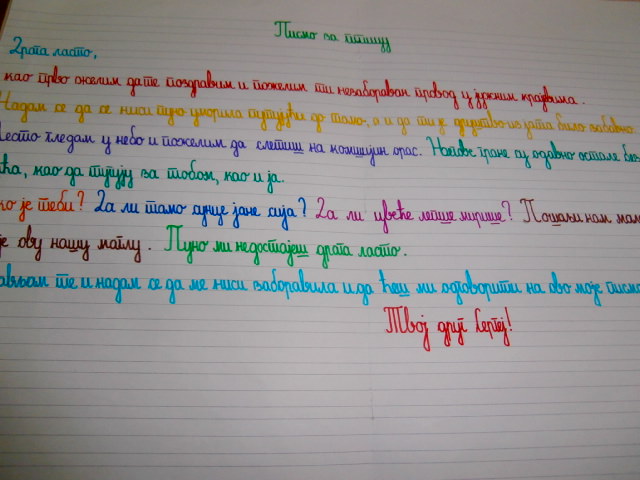 Писмо за птицу
Драга ласто,
као прво желим да те поздравим и пожелим ти незабораван провод у јужним крајевима.
Надам се да се ниси пуно уморила путујући до тамо, а и да ти је друштво из јата било забавно.
Често гледам у небо и пожелим да слетиш на комшијин орас. Његове гране су одавно остале без
ћа, као да тугују за тобом, као и ја.
ко је теби? Да ли тамо сунце јаче сија? Да ли цвеће лепше мирише? Пошаљи нам мал
је ову нашу маглу. Пуно ми недостајеш драга ласто.
ављам те и надам се да ме ниси заборавила и да ћеш ми одговорити на ово моје писмо
Твој друг Сергеј!